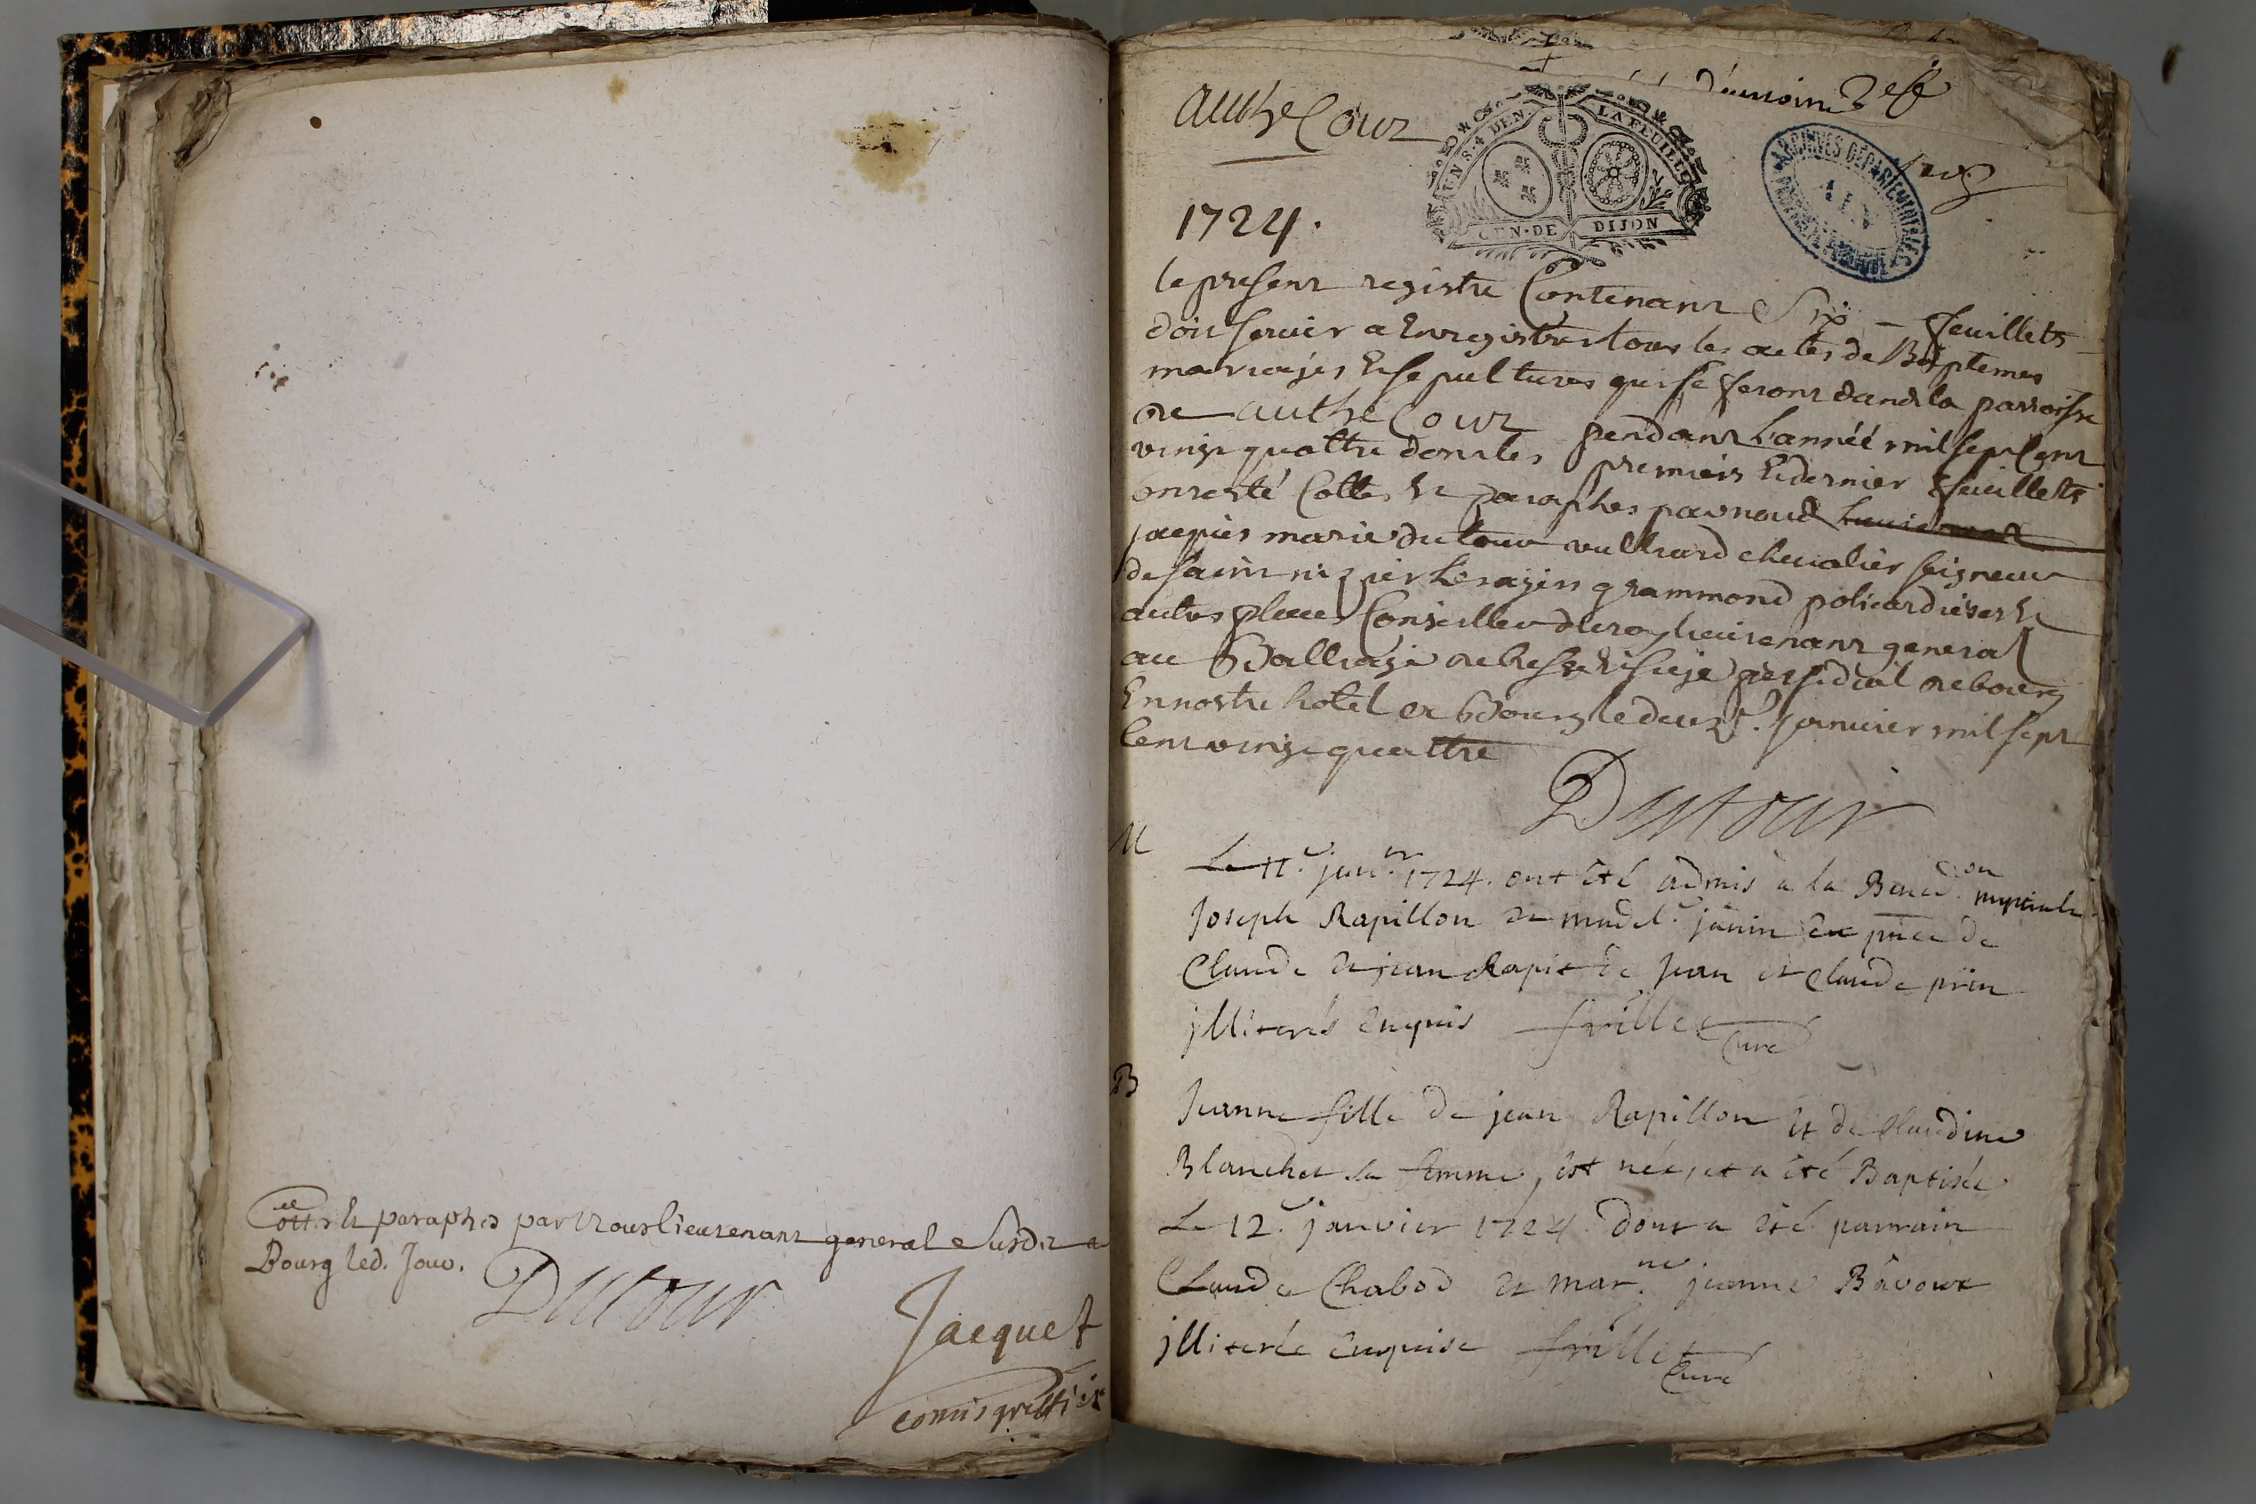 Cottes et paraphes par nous lieutenant general susdit a
Bourg led. Jour.
Dutour
Jacquet
comis greffier
authe Cour
UN S. 4 DEN. LA FEUILLE
GEN. DE DIJON
ARCHIVES DEPARTEMENTALES
1724.
le present registre Contenant Six feuillets
doit servir a Enregistrer tous les actes de Baptemes
mariages Et sepultures qui se feront dans la parroisse
de authe Cour pendant l'année mil sept Cent
vingt quattre dont les premier Et dernier feuillets
ont esté Cottes et paraphes par nous
jacques marie dutour vulliard chevalier seigneur
de saint nizier grammond et
autres places Conseiller du roy lieutenant general
au Balliage de bresse Et siege presidial de bourg
En nostre hotel a Bourg le deuxe. janvier mil sept
Cent vingt quattre
Dutour
M
Le 11e. janer. 1724. ont été admis a la Bened.on nuptiale
Joseph Rapillon et madele. janin en pnce de
Claude et jean Rapit de jean et Claude
jlliterés enquis frillet
Curé
B
Jeanne fille de jean Rapillon et de Claudine
Blanchet sa femme, est née, et a été Baptisée
Le 12e. janvier 1724. dont a été parrain
Claude Chabod et mar.ne jeanne Bavoux
jlliterée enquise frillet
Curé